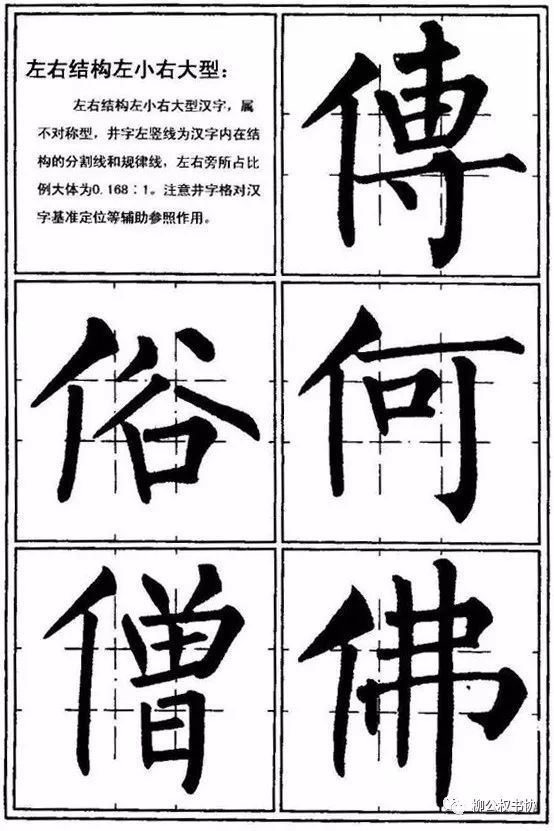 左右结构左小右大型：
左右结构左小右大型汉字，属
不对称型，井字左竖线为汉字内在结
构的分割线和规律线，左右旁所占比
例大体为0.168：1。注意井字格对汉
字基准定位等辅助参照作用。
傳
俗
何
僧
佛
柳公权书协